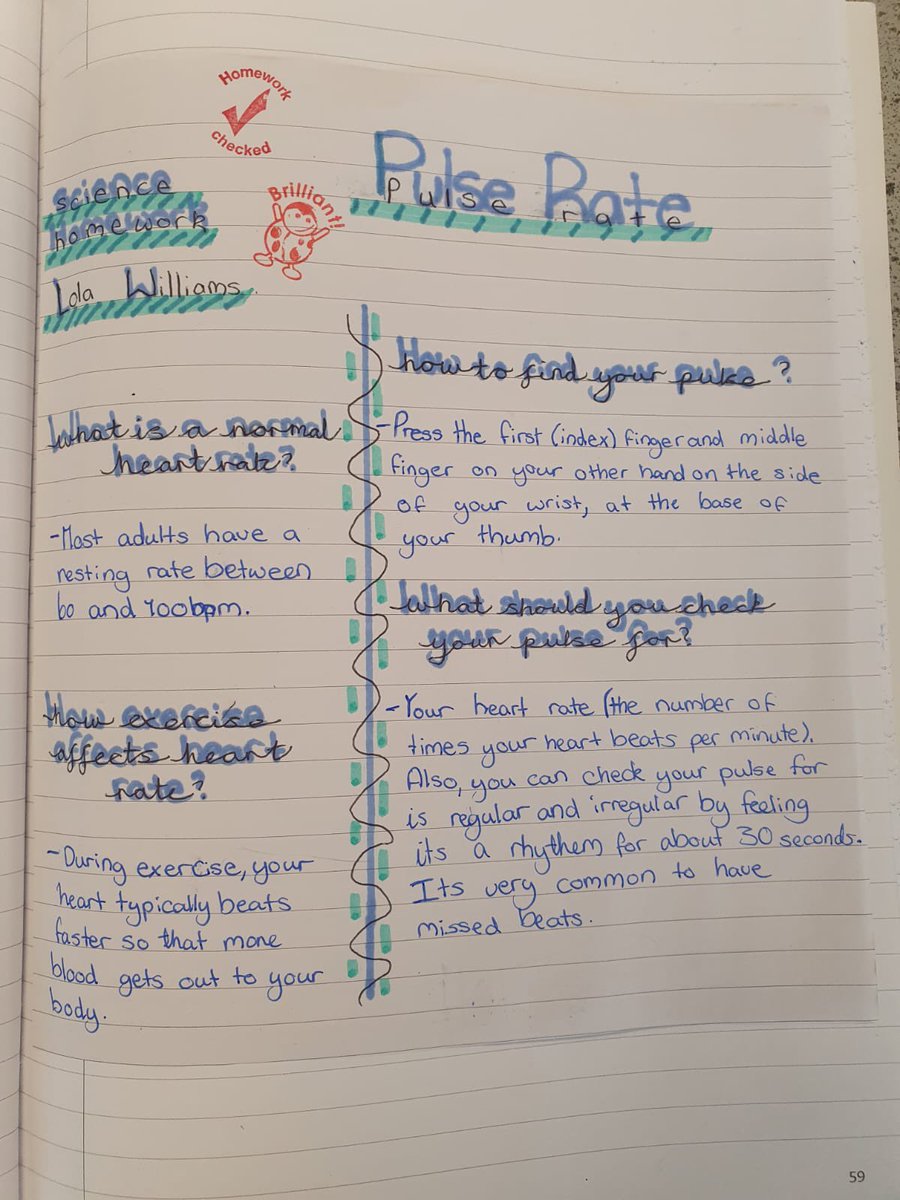 Homework
checked
Pulse Rate
Pulse rate
science
homework
Brilliant!
Lola Williams.
What is a normal
heart rate?
-Most adults have a
resting rate between
60 and 100bpm.
How exercise
affects heart
rate?
-During exercise, your
heart typically beats
faster so that more
blood gets out to your
body.
How to find your pulse?
-Press the first (index) finger and middle
finger on your other hand on the side
of your wrist, at the base of
your thumb.
What should you check
your pulse for?
-Your heart rate (the number of
times your heart beats per minute).
Also, you can check your pulse for
is regular and irregular by feeling
its a rhythem for about 30 seconds.
Its very common to have
missed beats.
59